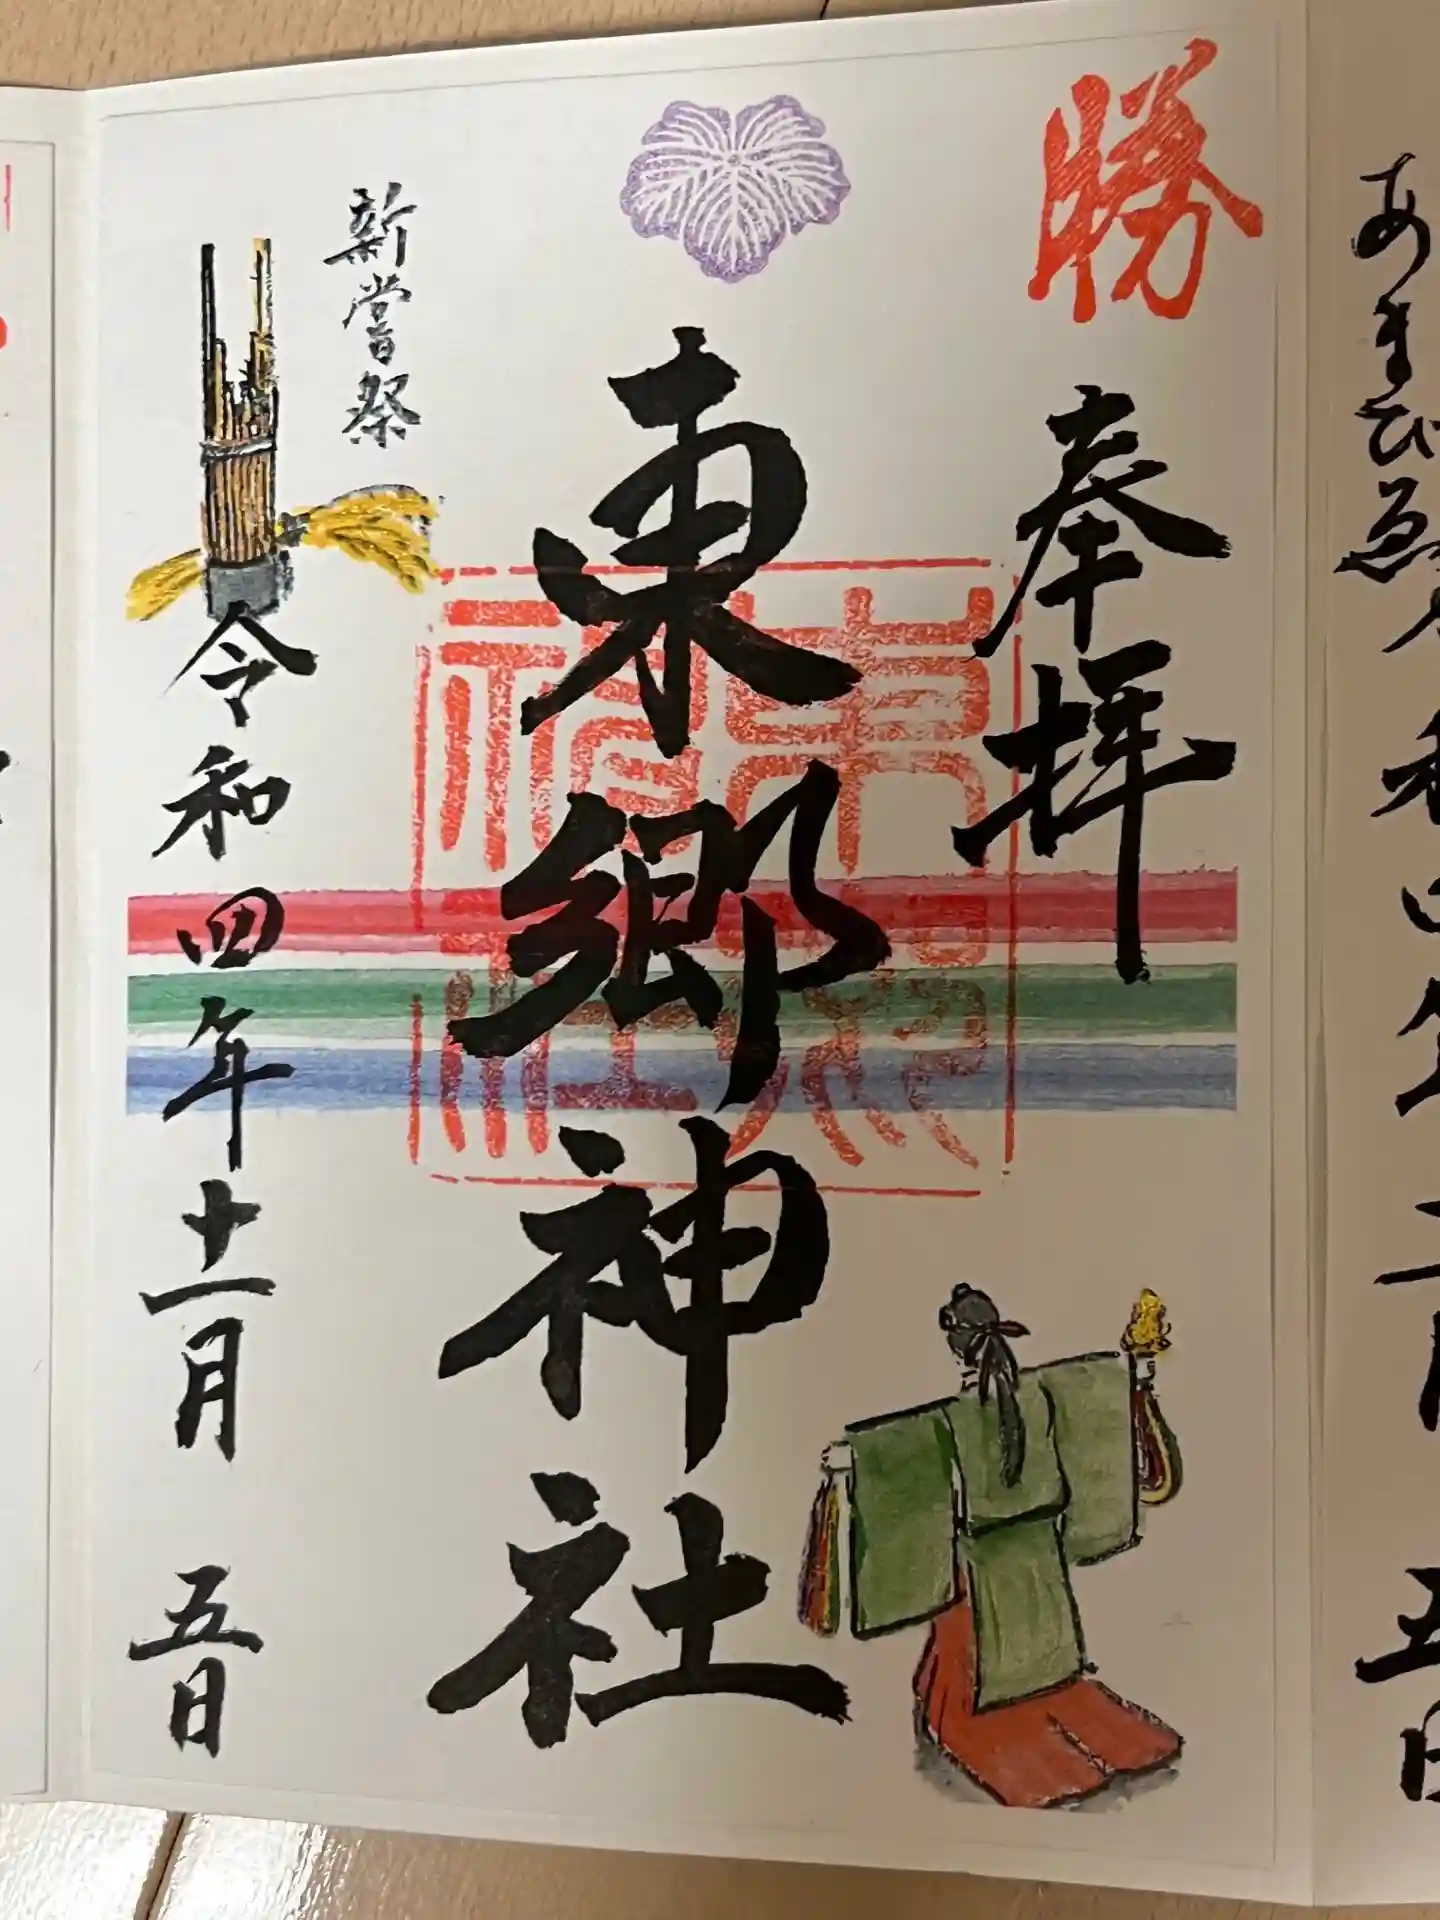 あまびゑ
五日
勝
奉拝
東郷神社
東郷神社
新嘗祭
令和四年十一月 五日